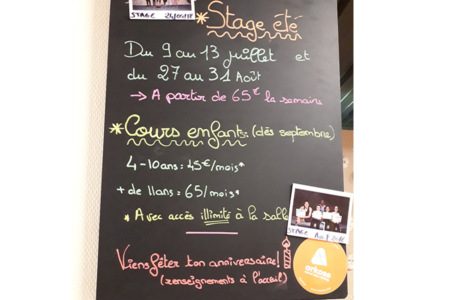 STAGE 24/04/18
*Stage été
Du 9 au 13 juillet et
du 27 au 31 Août
→ A partir de 65€ la semaine
*Cours enfants: (dès septembre)
4-10ans: 45€/mois*
+ de 11ans = 65/mois*
* Avec accès illimité à la salle
STAGE Août 2018
Viens fêter ton anniversaire!
(renseignements à l'accueil)
arkose